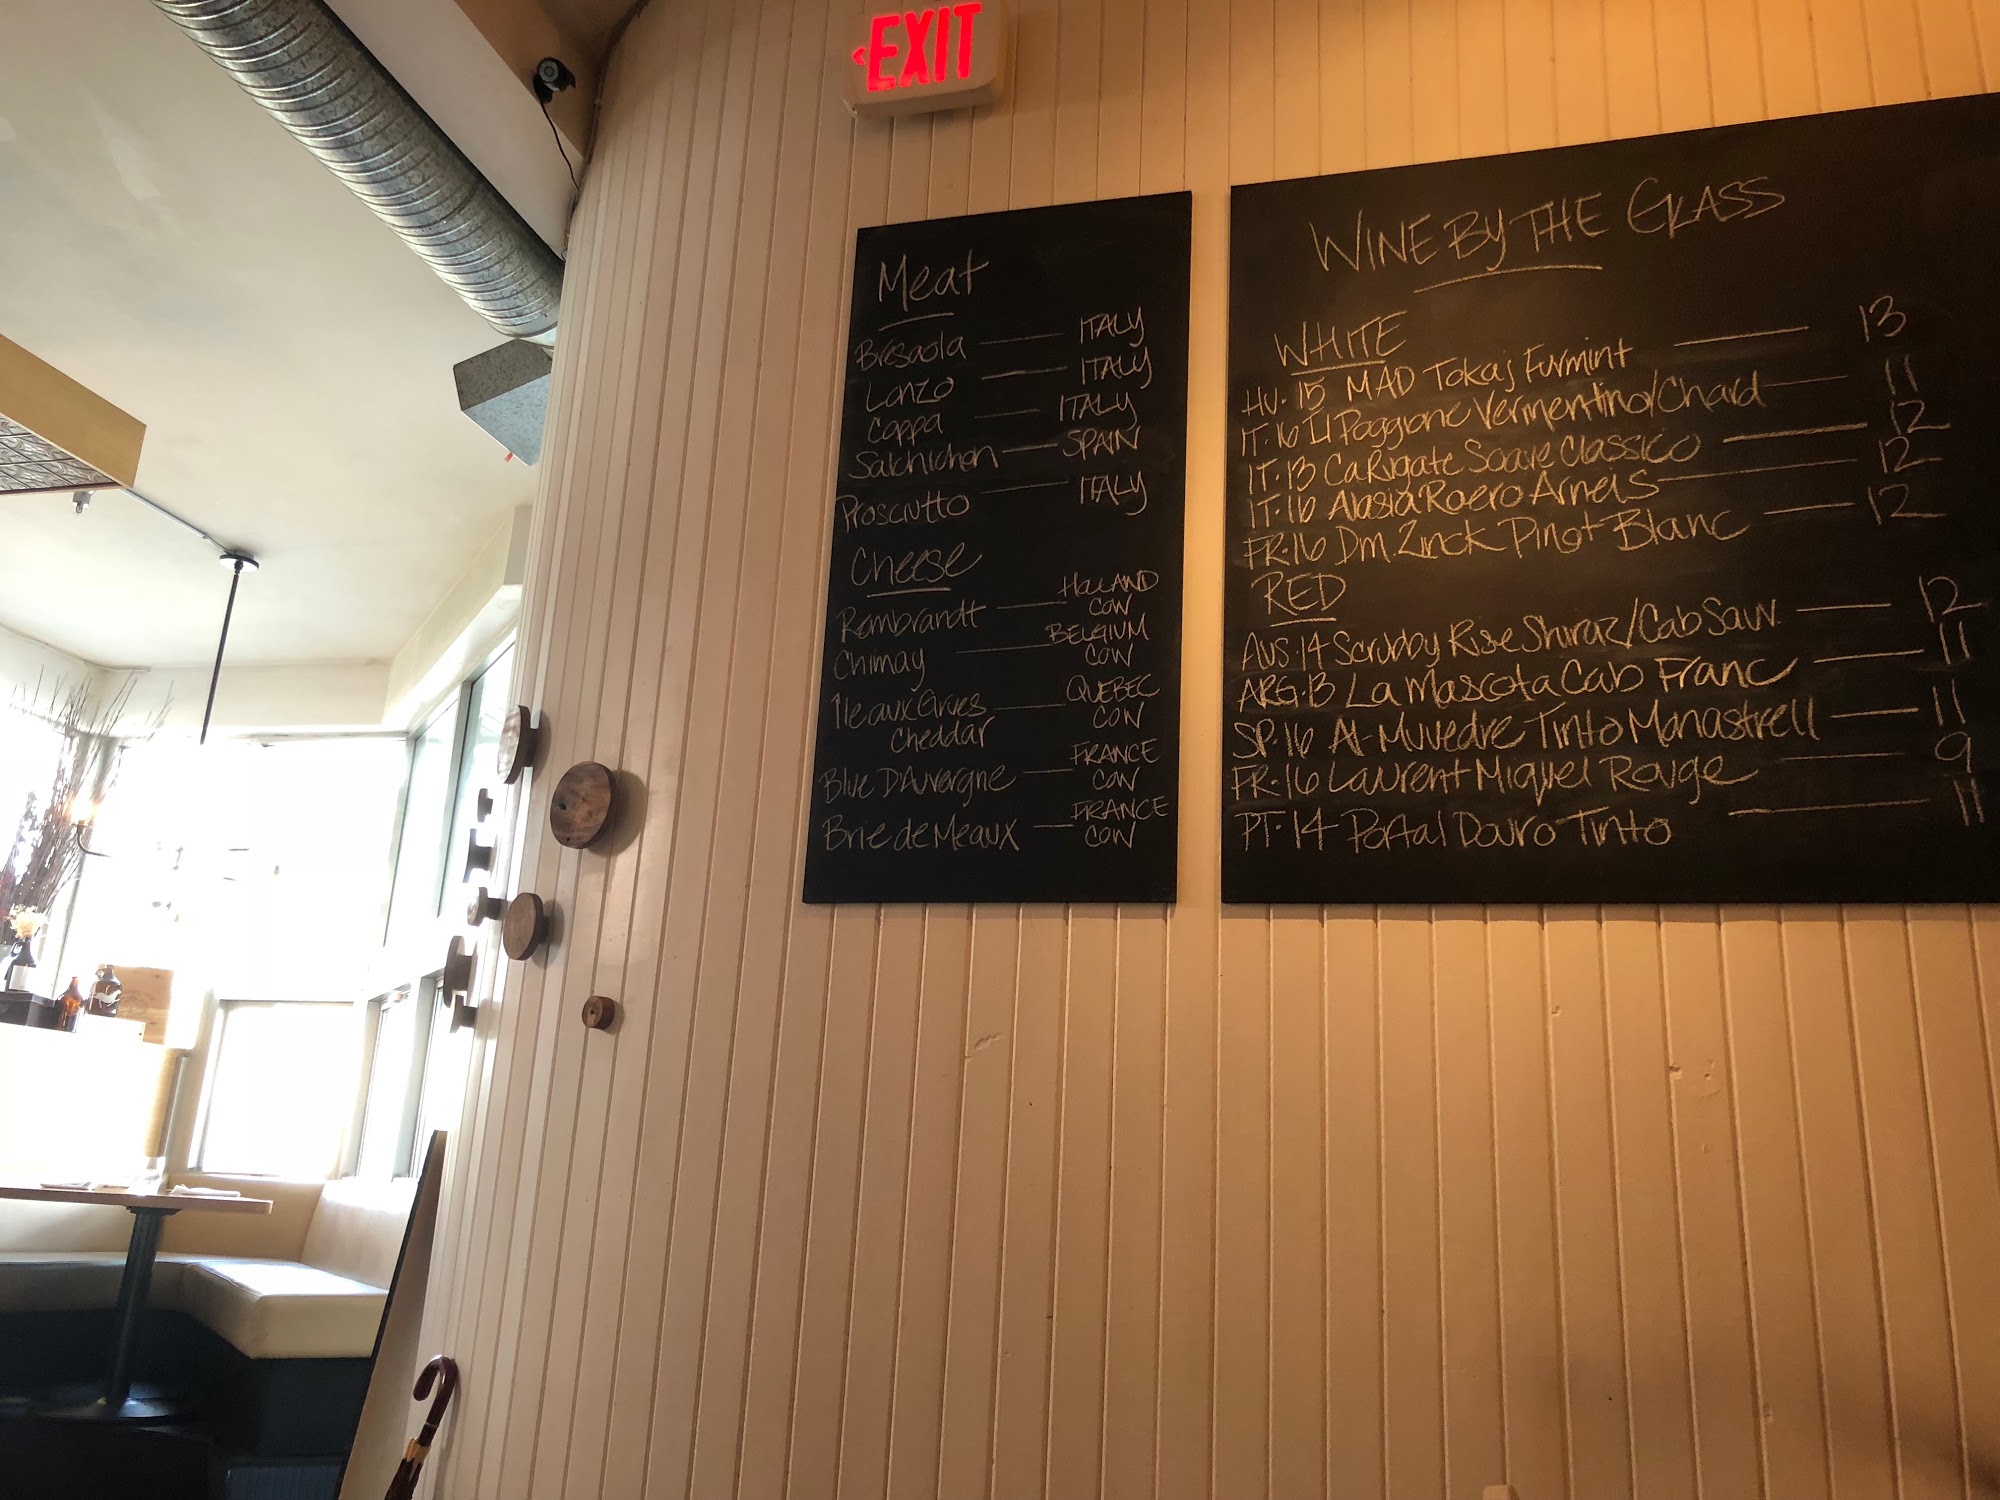 <EXIT
Meat
Bresaola — ITALY
Lonzo — ITALY
Coppa — ITALY
Salchichon — SPAIN
Prosciutto — ITALY
Cheese
Rembrandt — HOLLAND COW
Chimay — BELGIUM COW
Île aux Grues Cheddar — QUEBEC COW
Blue D'Auvergne — FRANCE COW
Brie de Meaux — FRANCE COW
WINE BY THE GLASS
WHITE
HU. 15 MAD Tokaj Furmint — 13
IT. 16 Il Poggione Vermentino/Chard — 11
IT. 13 Ca Rugate Soave Classico — 12
IT. 16 Alasia Roero Arneis — 12
FR. 16 Dm. Zinck Pinot Blanc — 12
RED
AUS. 14 Scrubby Rise Shiraz/Cab Sauv. — 12
ARG. 13 La Mascota Cab Franc — 11
SP. 16 Al-Muvedre Tinto Monastrell — 11
FR. 16 Laurent Miquel Rouge — 9
PT. 14 Portal Douro Tinto — 11